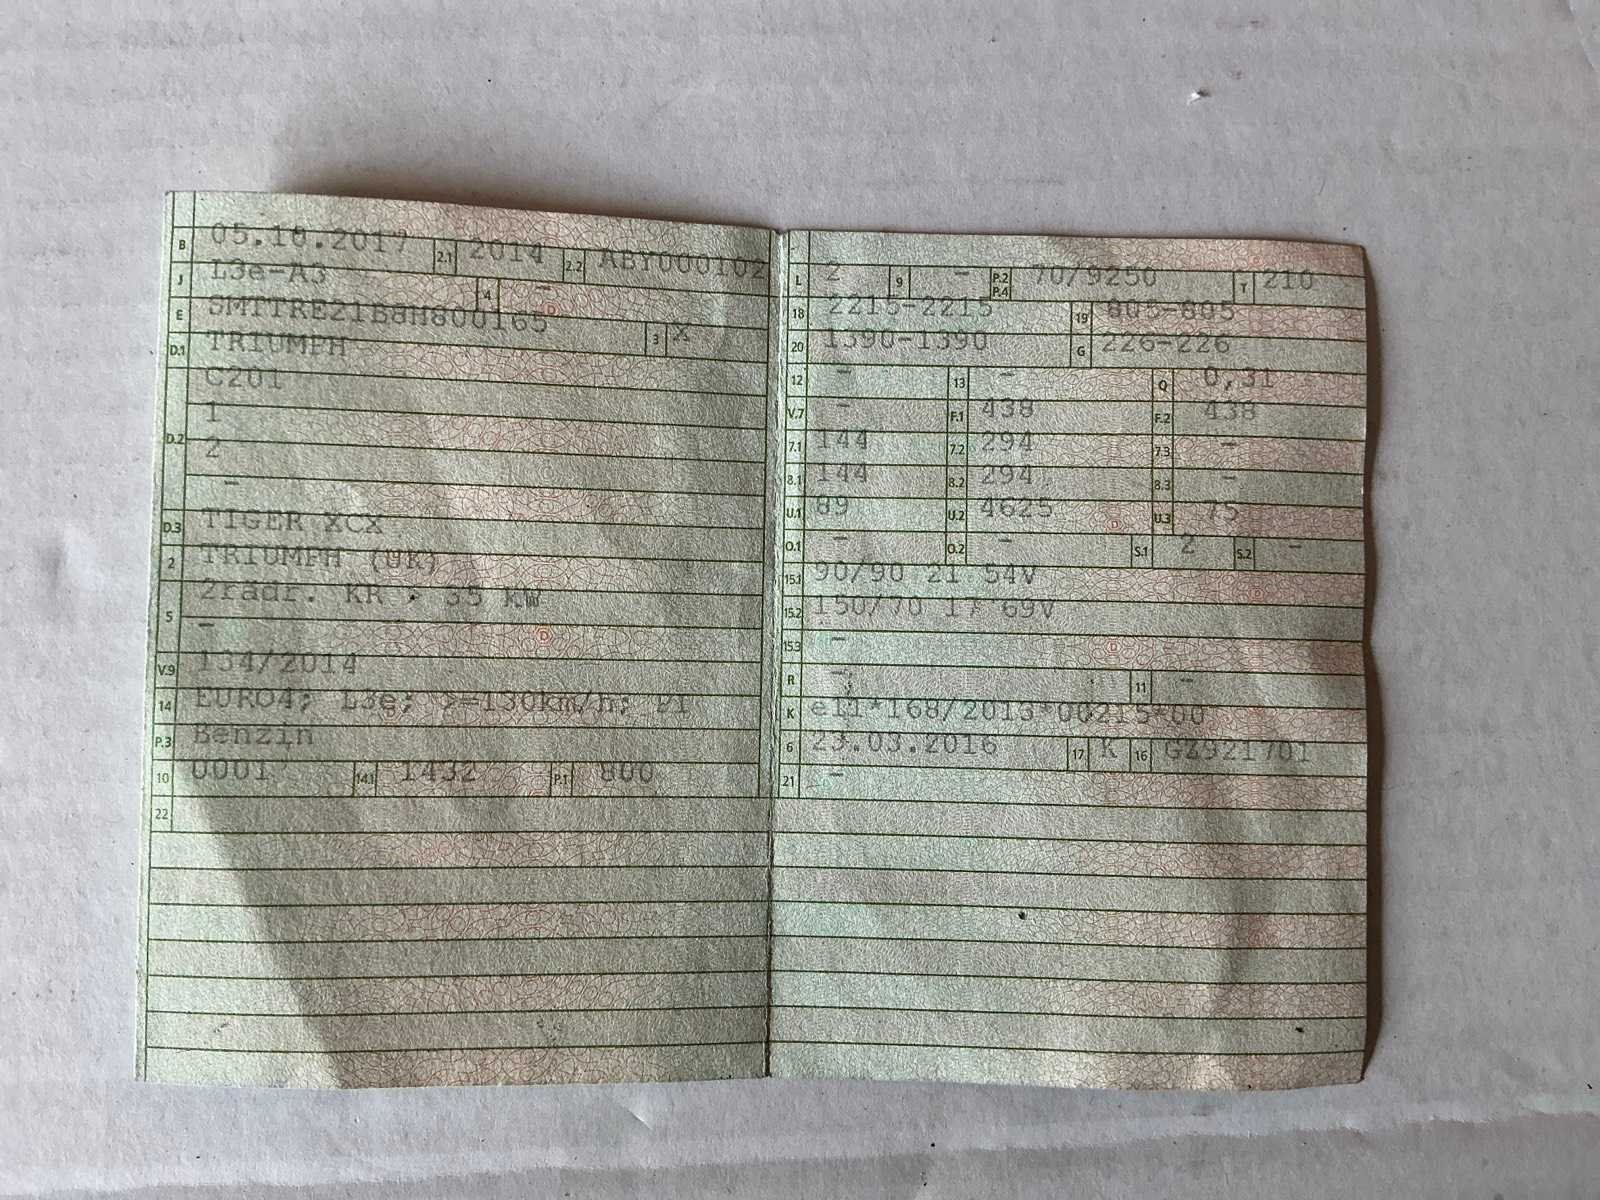 B 05.10.2017 2.1 2014 2.2 ABY000102
J L3e-A3 4 -
E SMTTRE21B8H800165 3 X
D.1 TRIUMPH
C201
1
D.2 2
-
D.3 TIGER XCX
2 TRIUMPH (UK)
5 2rädr. KR > 35 kW
-
V.9 134/2014
14 EURO4; L3e; >=130km/h; PI
P.3 Benzin
10 0001 14.1 1432 P.1 800
22
L 2 9 - P.2 P.4 70/9250 T 210
18 2215-2215 19 805-805
20 1390-1390 G 226-226
12 - 13 - Q 0,31
V.7 - F.1 438 F.2 438
7.1 144 7.2 294 7.3 -
8.1 144 8.2 294 8.3 -
U.1 89 U.2 4625 U.3 75
O.1 - O.2 - S.1 2 S.2 -
15.1 90/90 21 54V
15.2 150/70 17 69V
15.3 -
R - 11 -
K e11*168/2013*00215*00
6 23.03.2016 17 K 16 GZ921701
21 -